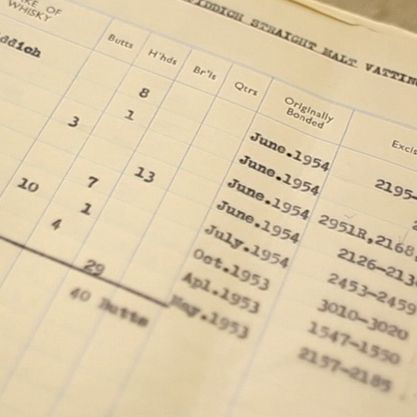 DDICH STRAIGHT MALT VATTING
OF
WHISKY
Butts H'hds Br'ls Qtrs Originally Bonded Excis
ddich
8 June.1954 2195-
3 1 June.1954
June.1954 2951R,2168,
7 13 June.1954 2126-213
10 1 July.1954 2453-2459
4 Oct.1953 3010-3020
29 Apl.1953 1547-1550
40 Butts May.1953 2157-2185